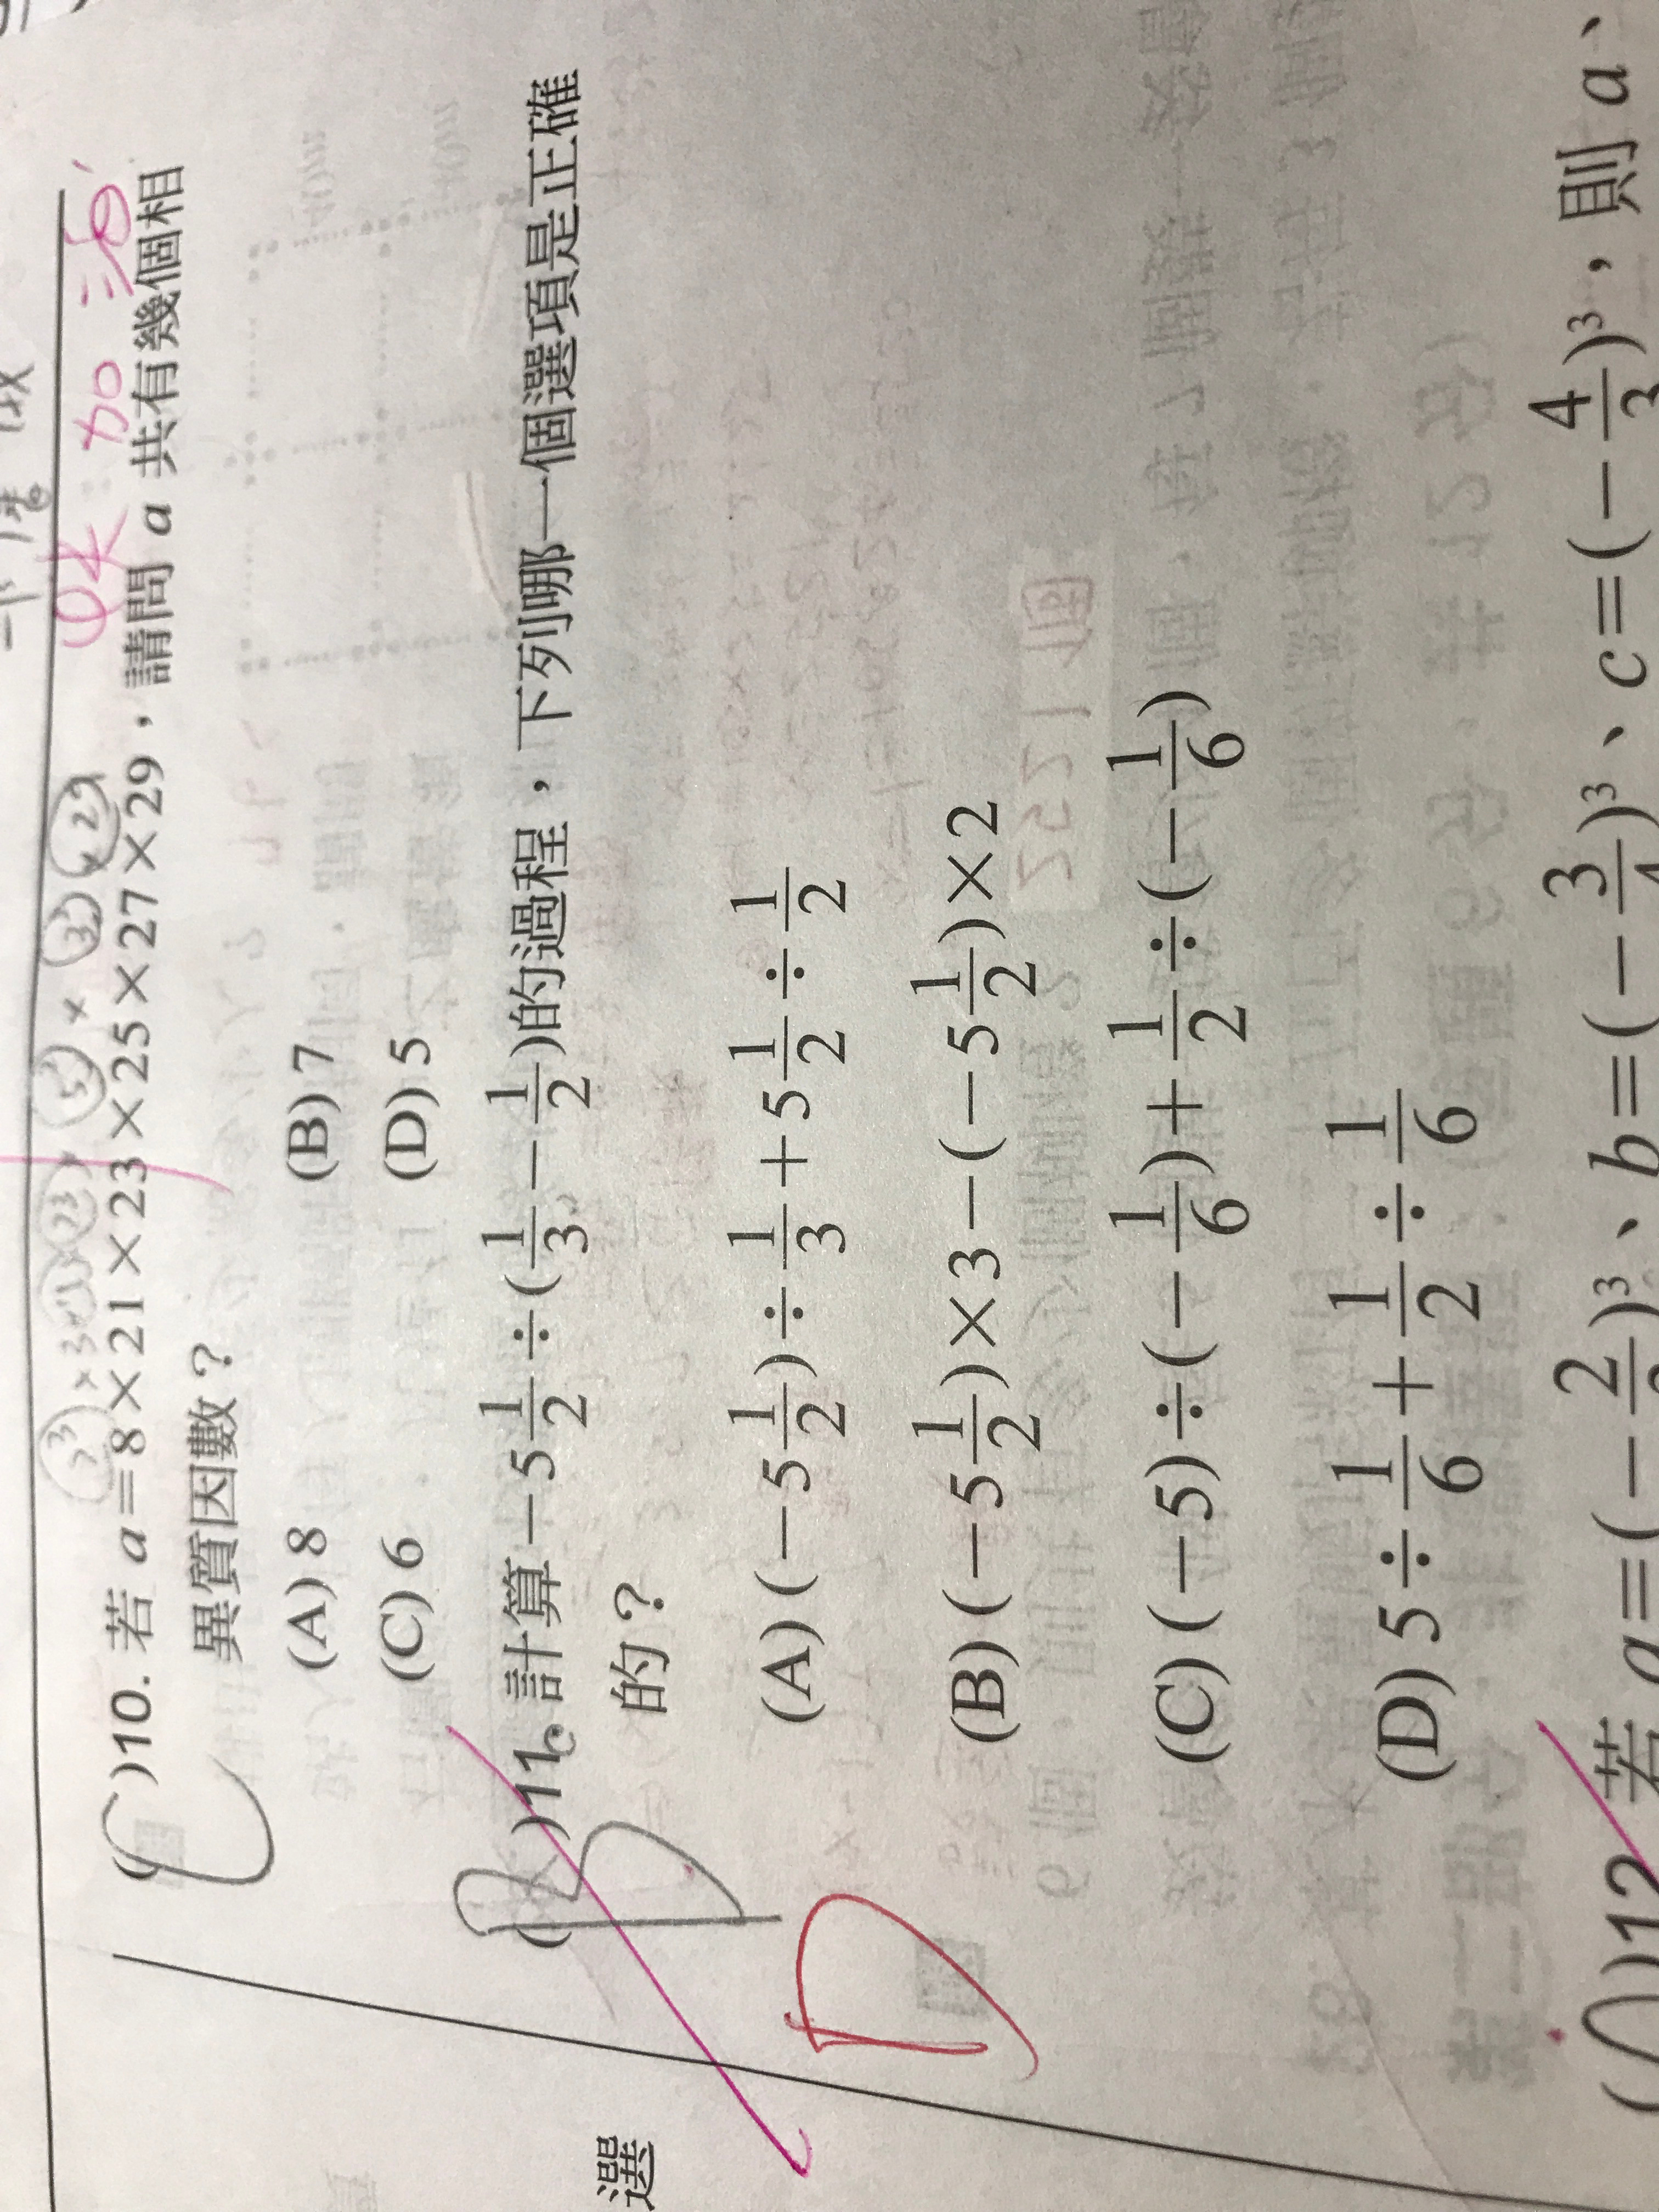 ( C )10. 若 a=8×21×23×25×27×29，請問 a 共有幾個相
異質因數？
(A) 8 (B) 7
(C) 6 (D) 5
( B )11. 計算 −5 1/2 ÷ ( 1/3 − 1/2 )的過程，下列哪一個選項是正確
的？
D
(A) (−5 1/2 )÷ 1/3 + 5 1/2 ÷ 1/2
(B) (−5 1/2 )×3−(−5 1/2 )×2
(C) (−5)÷(− 1/6 )+ 1/2 ÷(− 1/6 )
(D) 5÷ 1/6 + 1/2 ÷ 1/6
選
)12 若 a=(− 2/ )³、b=(− 3/ )³、c=(− 4/3 )³，則 a、